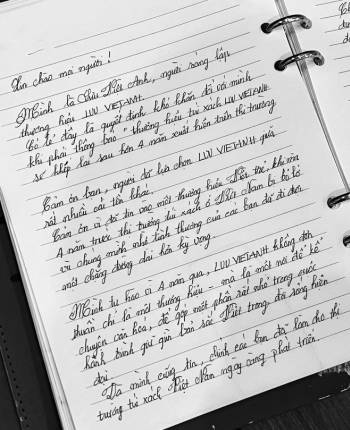 Xin chào mọi người!
Mình là Lưu Việt Anh, người sáng lập
thương hiệu LUU VIETANH.
Có lẽ đây là quyết định khó khăn đối với mình
khi phải thông báo "thương hiệu túi xách LUU VIETANH
sẽ khép lại sau hơn 4 năm xuất hiện trên thị trường.
Cảm ơn bạn, người đã lựa chọn LUU VIETANH giữa
rất nhiều cái tên khác.
Cảm ơn vì đã tin vào một thương hiệu Việt khi
4 năm trước thị trường túi xách ở Việt Nam bị bỏ
và chúng mình nhờ tình thương của các bạn đã đi được
một chặng đường dài hơn kỳ vọng.
Mình tự hào vì 4 năm qua, LUU VIETANH không đơn
thuần chỉ là một thương hiệu - mà là một nơi để kể
chuyện văn hóa, để góp một phần rất nhỏ trong
hành trình giữ gìn bản sắc Việt trong đời sống hiện
đại.
Và mình cũng tin, chính các bạn đã làm cho thị
trường túi xách Việt Nam ngày càng phát triển